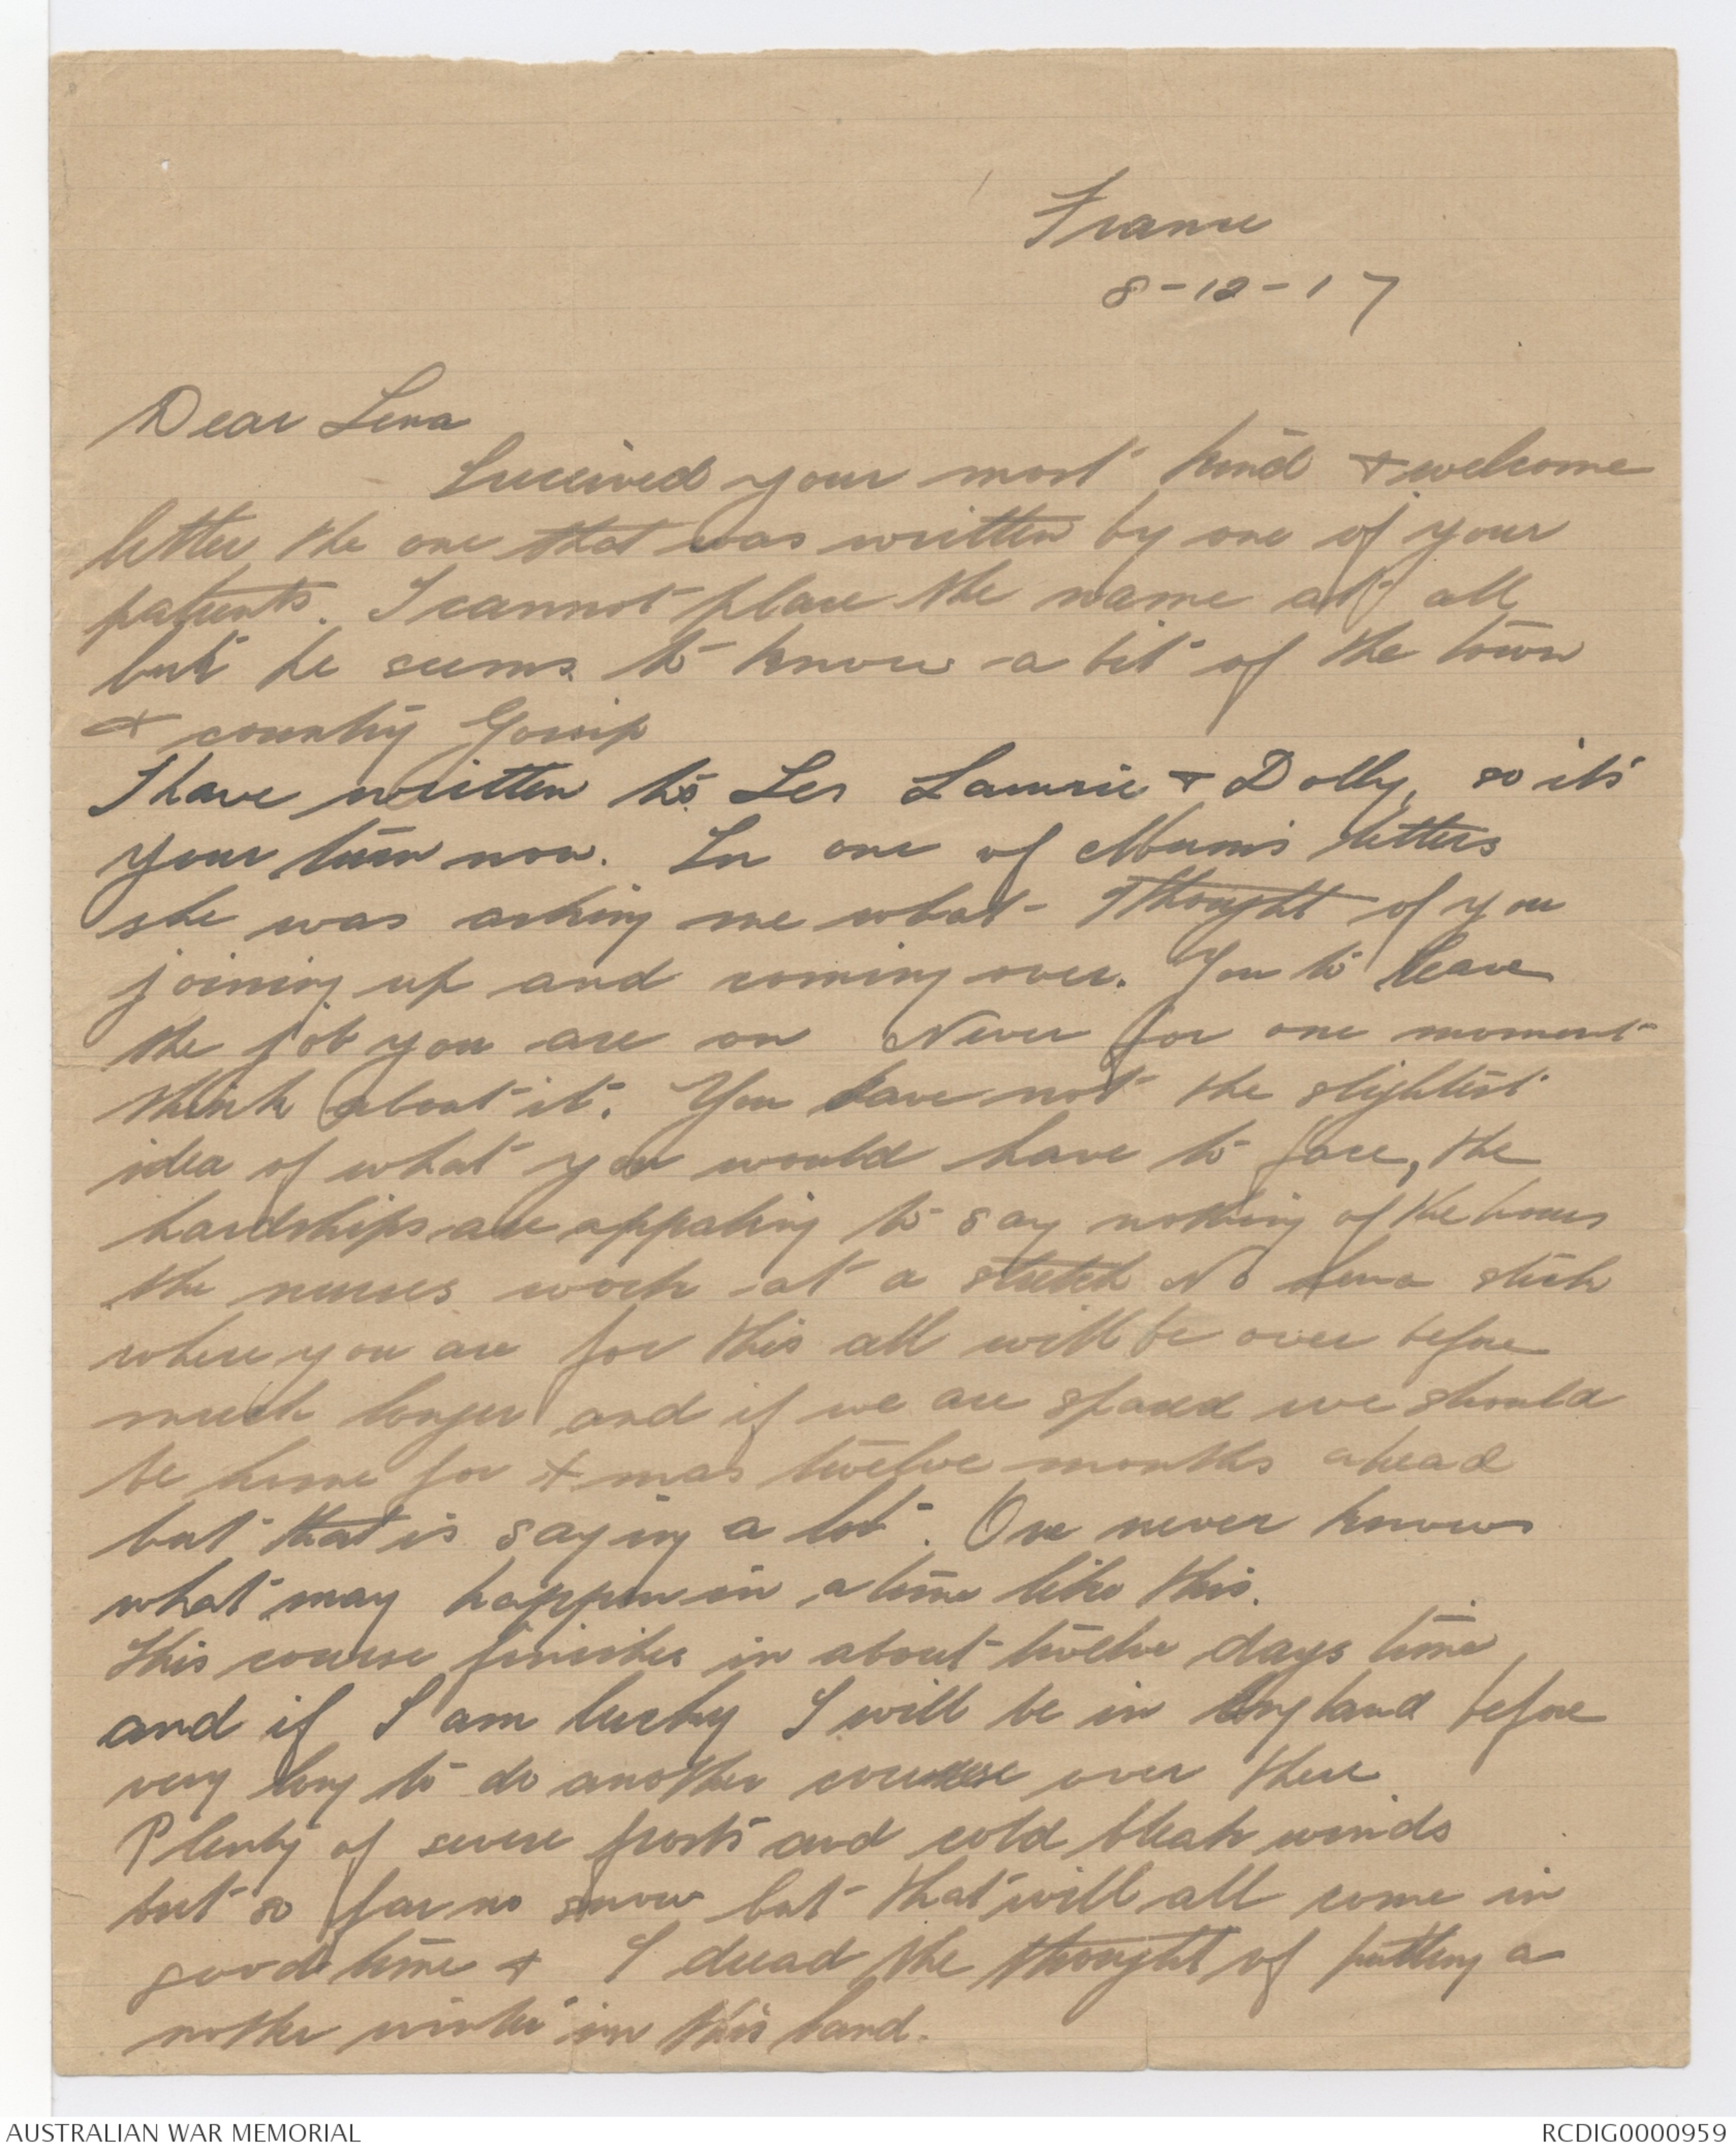 France
8-12-17
Dear Lena
I received your most kind & welcome
letter the one that was written by one of your
patients. I cannot place the name at all
but he seems to know a bit of the town
& country Gossip
I have written to Les Laurie & Dolly, so its
your turn now. In one of Mum's letters
she was asking me what I thought of you
joining up and coming over. You to leave
the job you are on Never for one moment
think about it. You have not the slightest
idea of what you would have to face, the
hardships are appaling to say nothing of the hours
the nurses work at a streach No Lena stick
where you are for this all will be over before
much longer and if we are spared we should
be home for Xmas twelve months ahead
but that is saying a lot. One never knows
what may happen in a time like this.
This course finishes in about twelve days time
and if I am lucky I will be in England before
very long to do another course over there
Plenty of severe frosts and cold bleak winds
but so far no snow but that will all come in
good time & I dread the thought of putting a
nother winter in this land.
AUSTRALIAN WAR MEMORIAL
RCDIG0000959